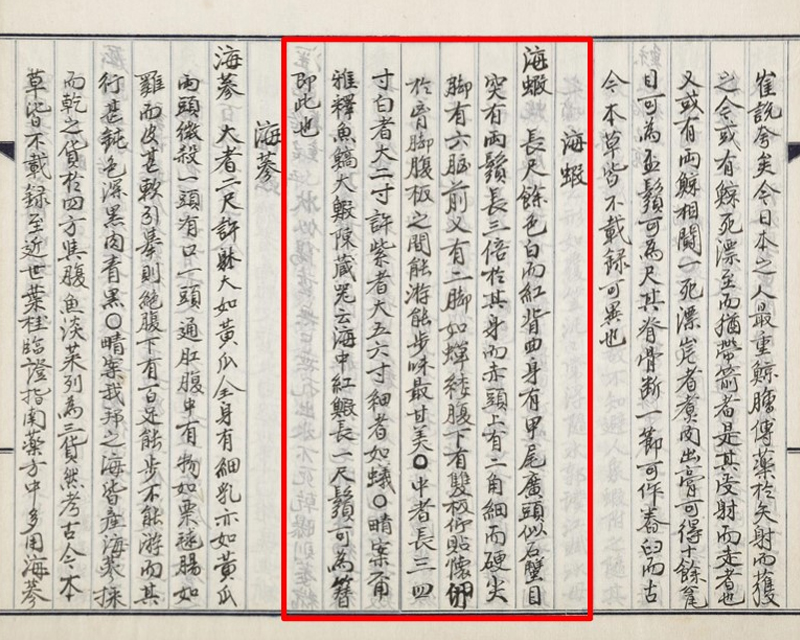 崔說兮矣今日本之人最重鯨膽傅藥於矢射而獲
之今或有鯨死漂至而猶帶箭者是其受射而走者也
又或有兩鯨相鬪一死漂岸者煮肉出膏可得十餘瓮
目可為盃鬚可為尺其脊骨斷一節可作舂臼而古
今本草皆不載錄可異也
海蝦
海蝦 長尺餘色白而紅背曲身有甲尾廣頭似石蟹目
突有兩鬚長三倍於其身而赤頭上有二角細而硬尖
脚有六胸前又有二脚如蟬緌腹下有雙板仰貼懷卵
於脚腹板之間能游能步味最甘美〇中者長三四
寸白者大二寸許紫者大五六寸細者如蟻〇晴案爾
雅釋魚鰝大鰕陳藏器云海中紅鰕長一尺鬚可為簪
即此也
海蔘
海蔘 大者二尺許體大如黃瓜全身有細乳亦如黃瓜
兩頭微殺一頭有口一頭通肛腹中有物如栗毬腸如
雞而皮甚軟引擧則絶腹下有百足能步不能游而其
行甚鈍色深黑肉靑黑〇晴案我邦之海皆產海蔘採
而乾之貨於四方與腹魚淡菜列為三貨然考古今本
草皆不載錄至近世葉桂臨證指南藥方中多用海蔘